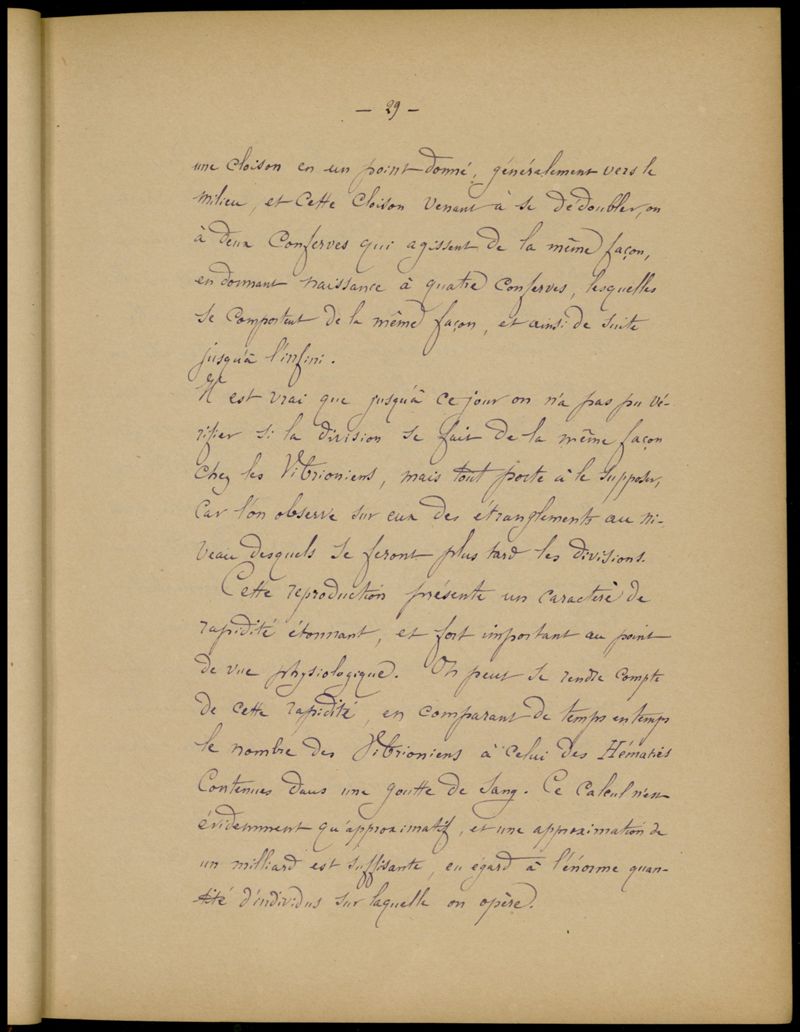 — 29 —
une cloison en un point donné, généralement vers le
milieu, et cette cloison venant à se dédoubler, on
à deux Conferves qui agissent de la même façon,
en donnant naissance à quatre Conferves, lesquelles
se comportent de la même façon, et ainsi de suite
jusqu'à l'infini.
Il est vrai que jusqu'à ce jour on n'a pas pu vé-
rifier si la division se fait de la même façon
chez les Vibrioniens, mais tout porte à le supposer,
car l'on observe sur eux des étranglements au ni-
veau desquels se feront plus tard les divisions.
Cette reproduction présente un caractère de
rapidité étonnant, et fort important au point
de vue physiologique. On peut se rendre compte
de cette rapidité, en comparant de temps en temps
le nombre des Vibrioniens à celui des Hématies
Contenues dans une goutte de sang. Ce calcul n'est
évidemment qu'approximatif, et une approximation de
un milliard est suffisante, eu égard à l'énorme quan-
tité d'individus sur laquelle on opère.